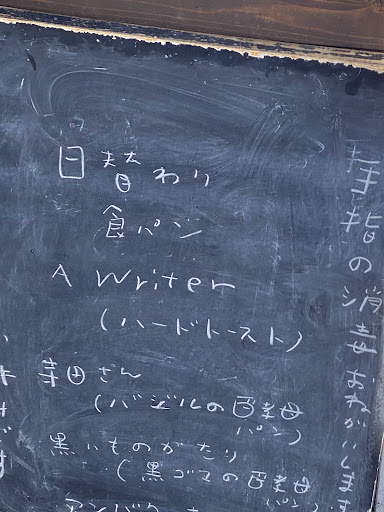 日替わり
食パン
A Writer
(ハードトースト)
寺田さん
(バジルの酵母
パン)
黒いものがたり
(黒ゴマの酵母
パン)
手指の消毒おねがいします